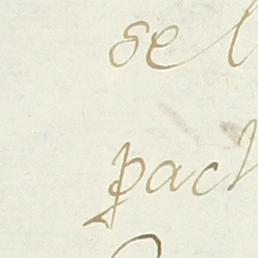 se
pach